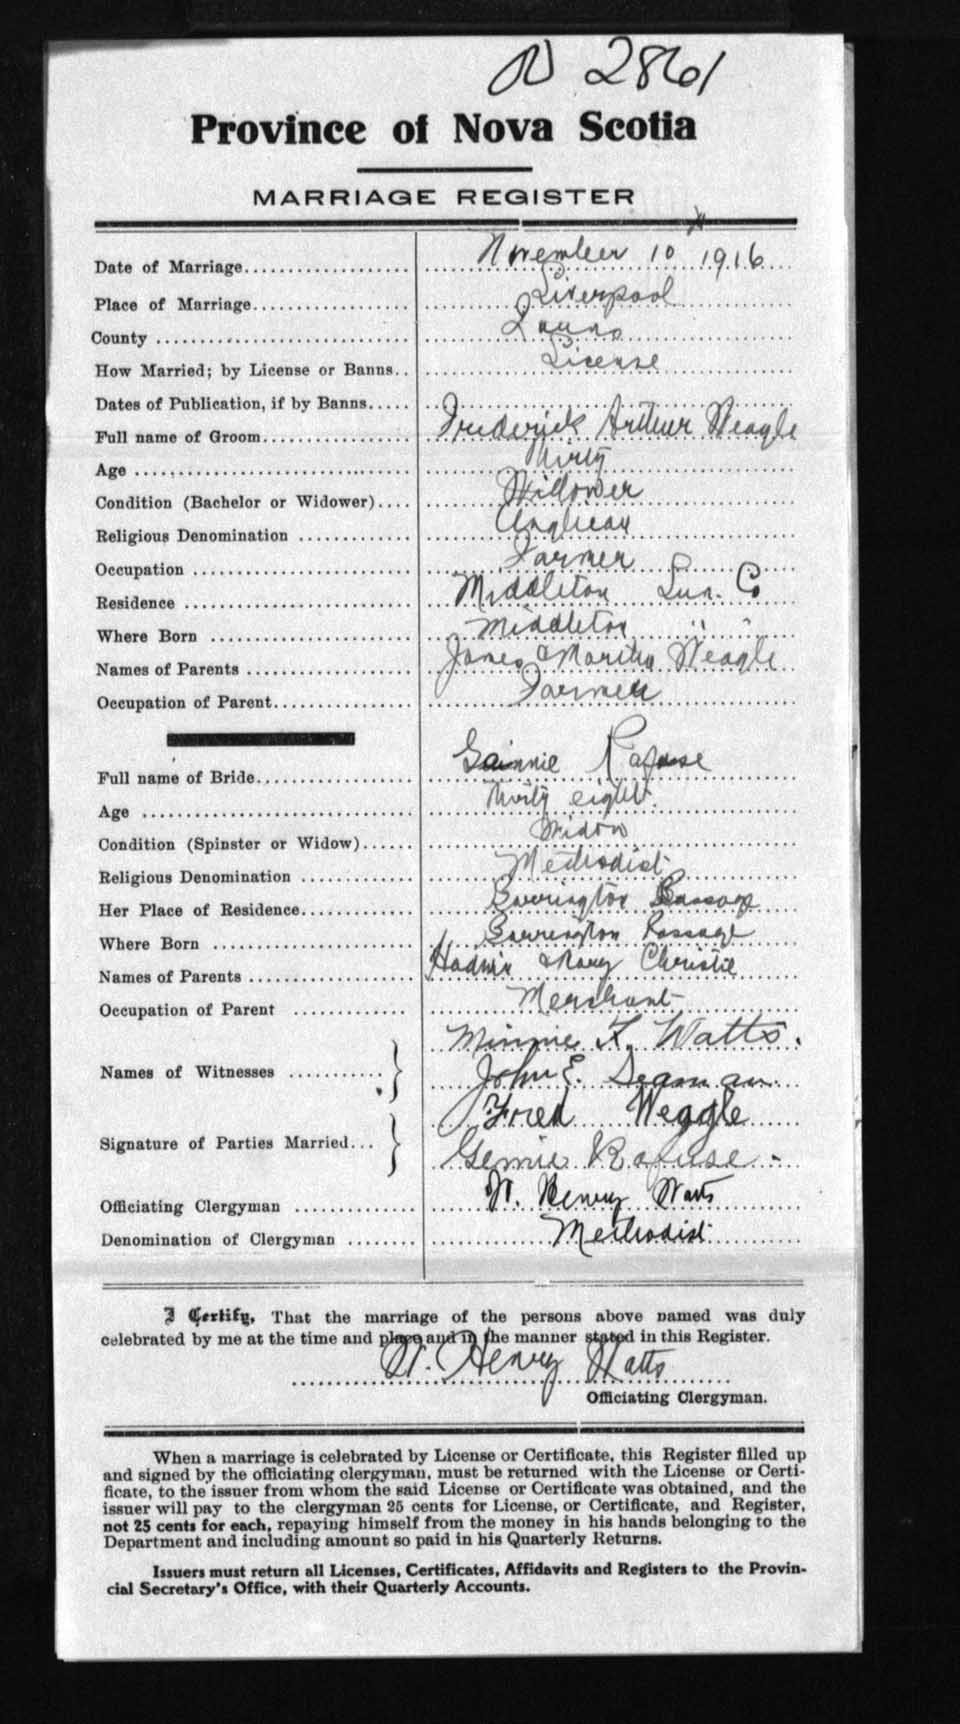 N 2861
Province of Nova Scotia
MARRIAGE REGISTER
Date of Marriage................... November 10th 1916
Place of Marriage................... Liverpool
County ................... Queens
How Married; by License or Banns.. License
Dates of Publication, if by Banns.....
Full name of Groom................ Frederick Arthur Weagle
Age ................... Thirty
Condition (Bachelor or Widower).... Widower
Religious Denomination ............ Anglican
Occupation ................... Farmer
Residence ................... Middleton Lun. Co
Where Born ................... Middleton " "
Names of Parents ................... James & Martha Weagle
Occupation of Parent................ Farmer
Full name of Bride................... Rafuse
Age ................... Thirty eight.
Condition (Spinster or Widow)...... Widow
Religious Denomination ............ Methodist
Her Place of Residence............ Barrington Passage
Where Born ................... Barrington Passage
Names of Parents ................... & Mary Christie
Occupation of Parent ............. Merchant
Names of Witnesses ............ Minnie F. Watts.
John E. Seaman
Signature of Parties Married... Fred Weagle
Gennie Rafuse.
Officiating Clergyman .............. W. Henry Watts
Denomination of Clergyman ........ Methodist
I Certify, That the marriage of the persons above named was duly
celebrated by me at the time and place and in the manner stated in this Register.
W. Henry Watts
Officiating Clergyman.
When a marriage is celebrated by License or Certificate, this Register filled up
and signed by the officiating clergyman, must be returned with the License or Certi-
ficate, to the issuer from whom the said License or Certificate was obtained, and the
issuer will pay to the clergyman 25 cents for License, or Certificate, and Register,
not 25 cents for each, repaying himself from the money in his hands belonging to the
Department and including amount so paid in his Quarterly Returns.
Issuers must return all Licenses, Certificates, Affidavits and Registers to the Provin-
cial Secretary's Office, with their Quarterly Accounts.